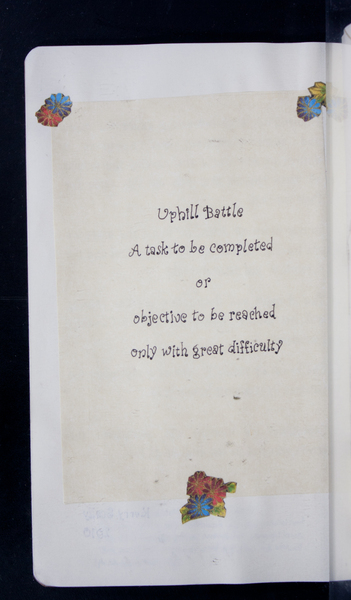 Uphill Battle
A task to be completed
or
objective to be reached
only with great difficulty